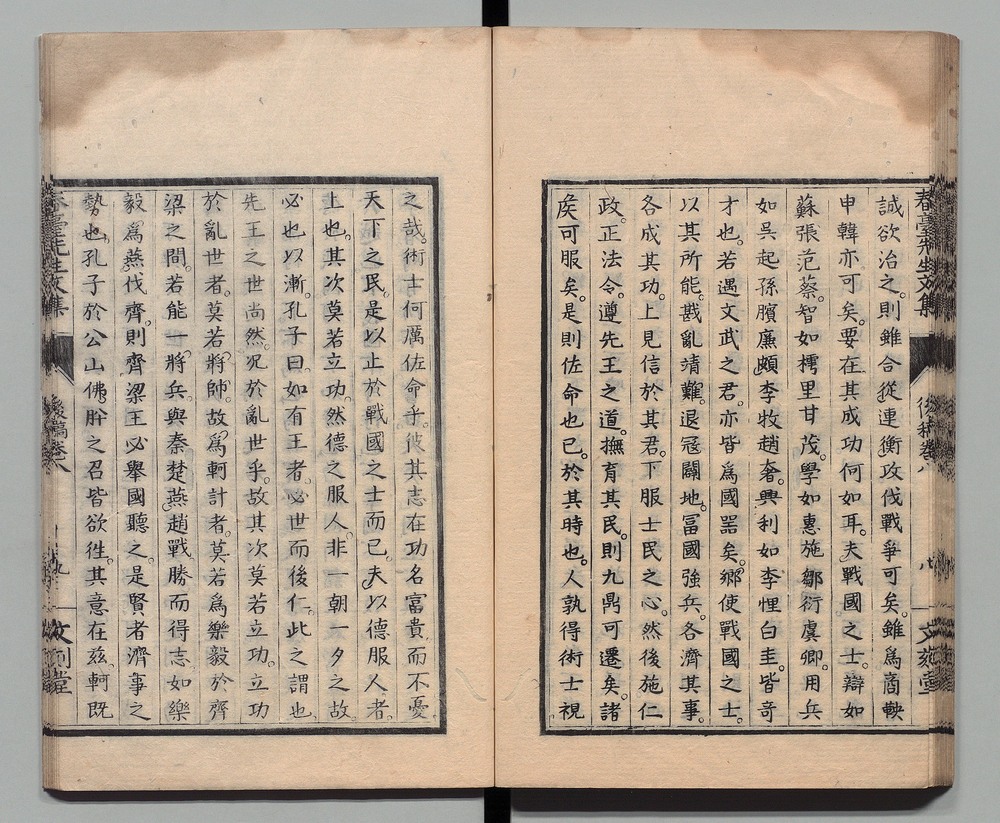 誠欲治之。則雖合從連衡攻伐戰爭可矣。雖爲商鞅
申韓亦可矣。要在其成功何如耳。夫戰國之士。辯如
蘇張范蔡。智如樗里甘茂。學如惠施鄒衍虞卿。用兵
如吳起孫臏廉頗李牧趙奢。興利如李悝白圭。皆奇
才也。若遇文武之君。亦皆爲國器矣。鄉使戰國之士。
以其所能。戡亂靖難。退冦闢地。冨國強兵。各濟其事。
各成其功。上見信於其君。下服士民之心。然後施仁
政。正法令。遵先王之道。撫育其民。則九鼎可遷矣。諸
矦可服矣。是則佐命也已。於其時也。人孰得術士視
之哉。術士何厲佐命乎。彼其志在功名富貴。而不憂
天下之民。是以止於戰國之士而已。夫以德服人者。
上也。其次莫若立功。然德之服人。非一朝一夕之故。
必也以漸。孔子曰。如有王者。必世而後仁。此之謂也。
先王之世尚然。况於亂世乎。故其次莫若立功。立功
於亂世者。莫若將帥。故爲軻計者。莫若爲樂毅於齊
梁之間。若能一將兵。與秦楚燕趙戰勝而得志。如樂
毅爲燕伐齊。則齊梁王必舉國聽之。是賢者濟事之
勢也。孔子於公山佛肸之召皆欲徃。其意在茲。軻既
春臺先生文集 後稿卷八 文刻堂